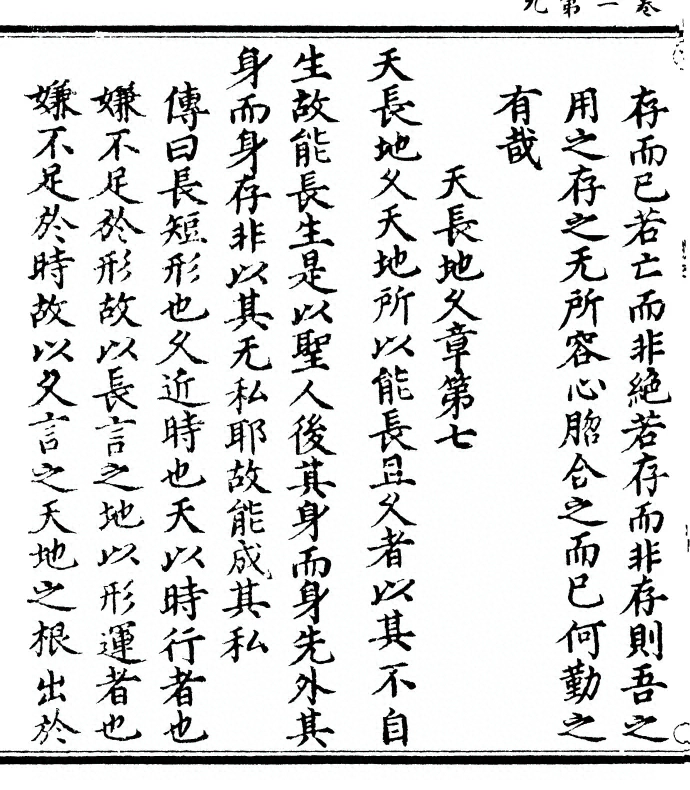 卷一第九
存而已若亡而非絶若存而非存則吾之
用之存之无所容心脗合之而已何勤之
有哉
天長地久章第七
天長地久天地所以能長且久者以其不自
生故能長生是以聖人後其身而身先外其
身而身存非以其无私耶故能成其私
傳曰長短形也久近時也天以時行者也
嫌不足於形故以長言之地以形運者也
嫌不足於時故以久言之天地之根出於